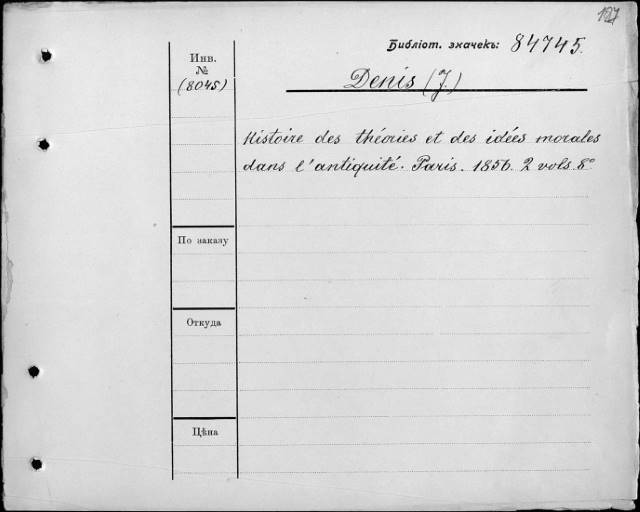 127
Библіот. значекъ: 84745.
Инв.
№
(8045)
Denis (J.)
Histoire des théories et des idées morales
dans l'antiquité. Paris. 1856. 2 vols. 8°
По заказу
Откуда
Цѣна